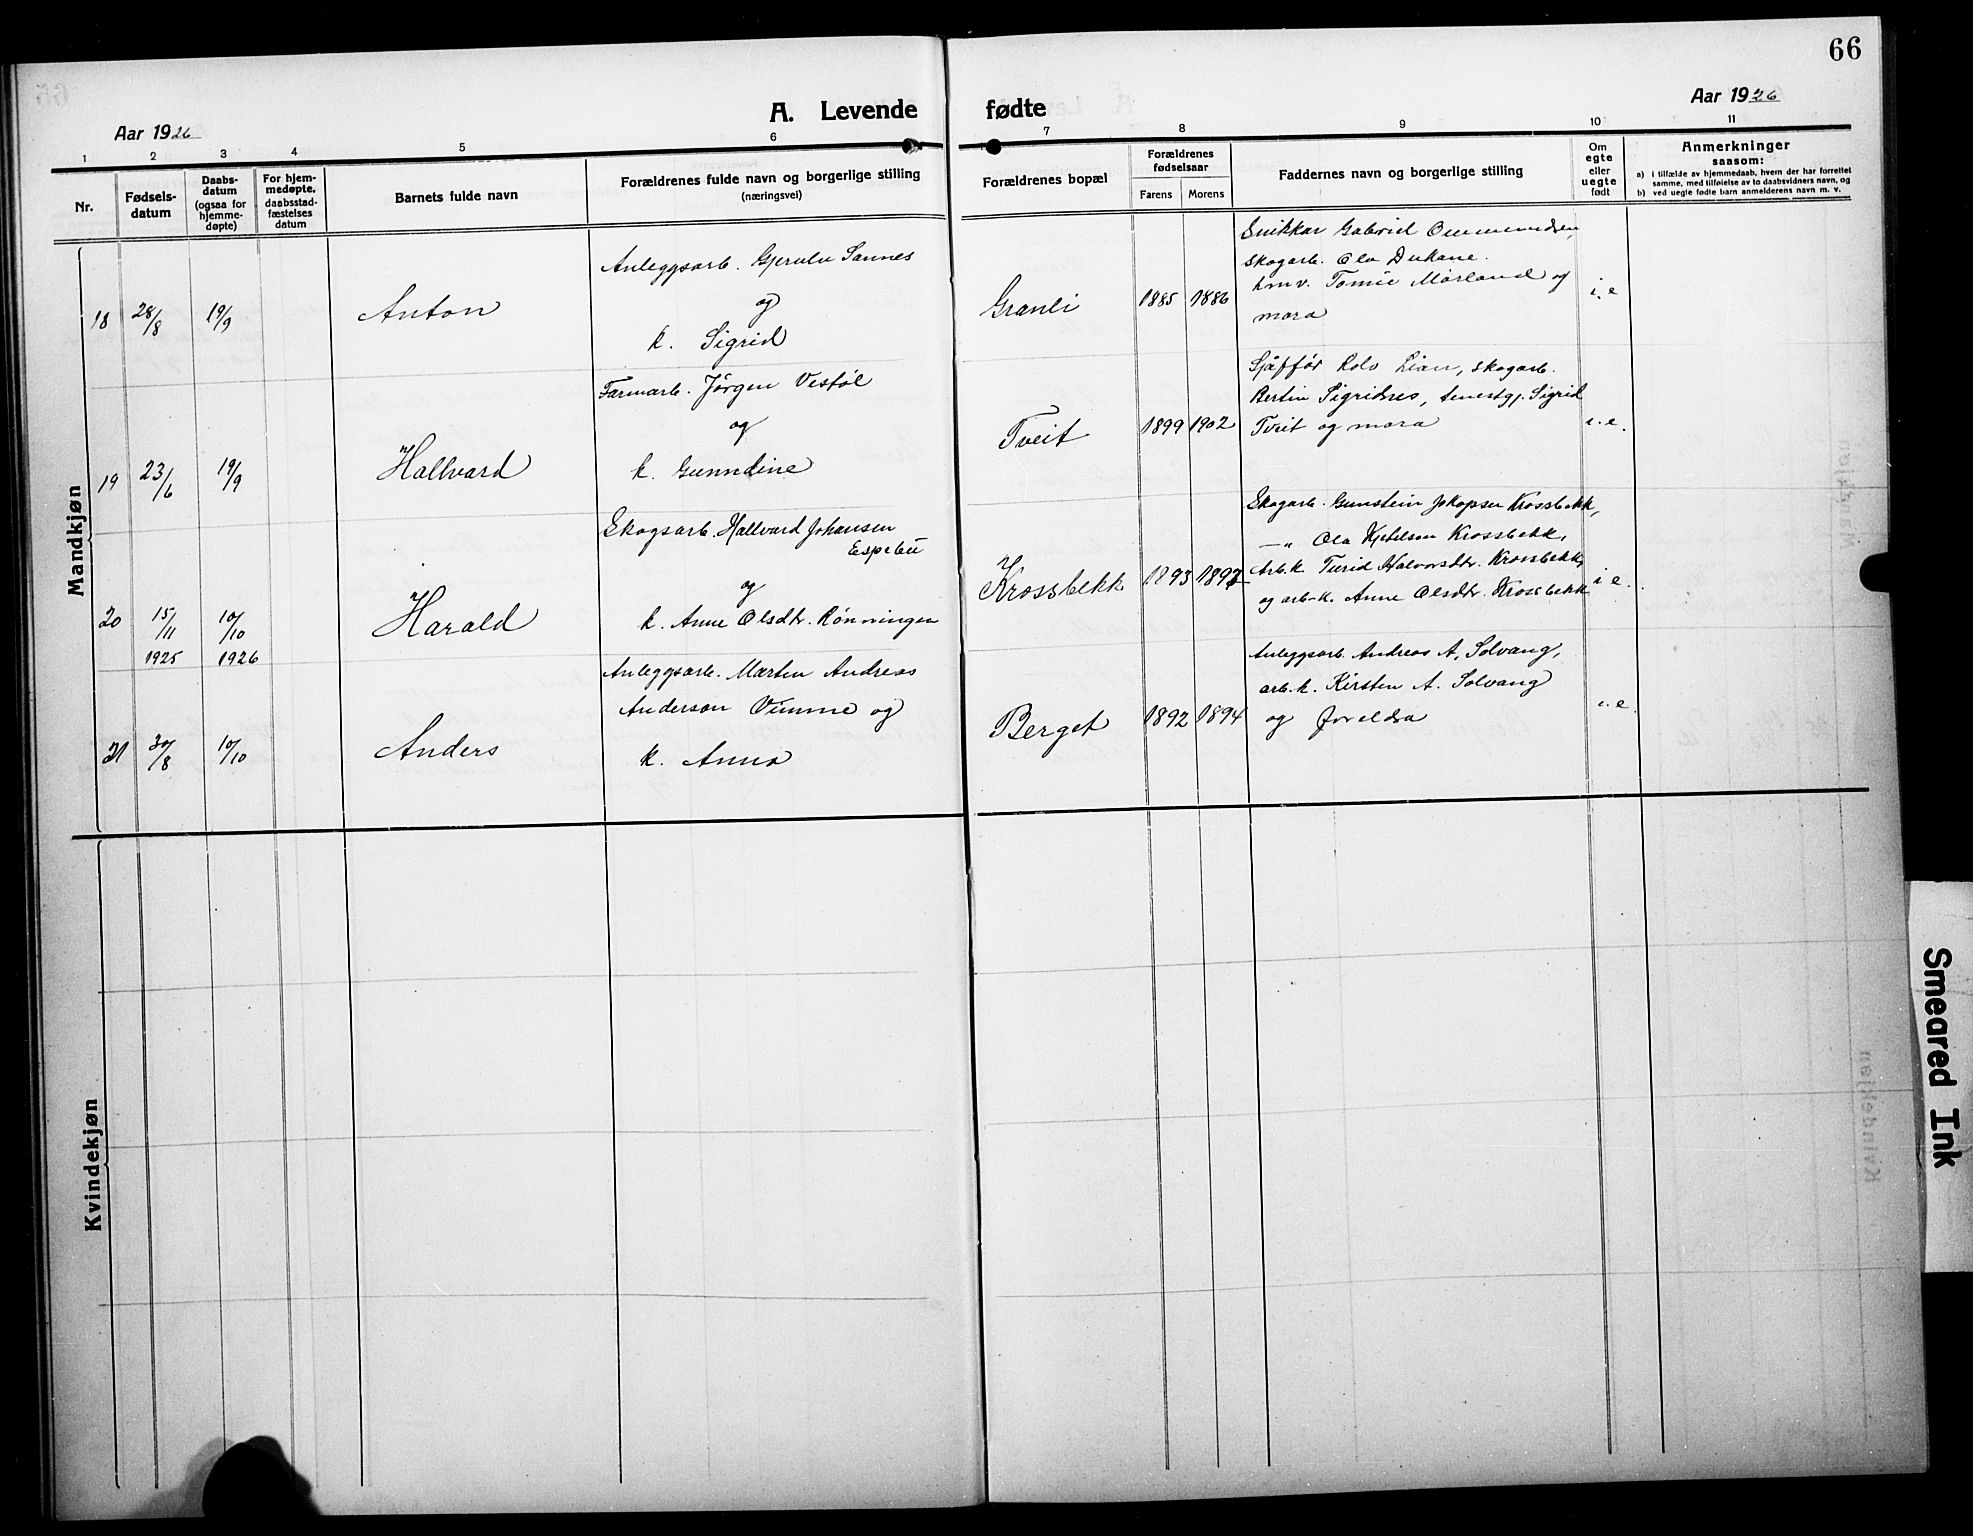 66
A. Levende fødte
Aar 1926
Aar 1926
1 2 3 4 5 6 7 8 9 10 11
Nr.
Fødsels-
datum
Daabs-
datum
(ogsaa for
hjemme-
døpte)
For hjem-
medøpte,
daabsstad-
fæstelses
datum
Barnets fulde navn
Forældrenes fulde navn og borgerlige stilling
(næringsvei)
Forældrenes bopæl
Forældrenes
fødselsaar
Farens Morens
Faddernes navn og borgerlige stilling
Om
egte
eller
uegte
født
Anmerkninger
saasom:
a) i tilfælde av hjemmedaab, hvem der har forrettet
samme, med tilføielse av to daabsvidners navn, og
b) ved uegte fødte barn anmelderens navn m. v.
Mandkjøn
18 28/8 19/9 Anton
Anleggsarb. Gjerulv Sannes
og
k. Sigrid
Granli 1885 1886
Snikkar Gabriel Ommundsen,
skogarb. Ola Dukane.
hmv. Tomine Mørland og
mora
i. e
19 23/6 19/9 Hallvard
Farmarb. Jørgen Vestøl
og
k. Gunndine
Tveit 1899 1902
Sjåffør Rolv Lian, skogarb.
Bertin Sigridnes, tenestgj. Sigrid
Tveit og mora
i. e.
20 15/11 1925 10/10 1926 Harald
Skogsarb. Hallvard Johansen
Espebu
og
k. Anne Olsdtr. Rønningen
Krossbekk 1893 1897
Skogarb. Gunstein Jakopsen Krossbekk,
—„ Ola Kjetilsen Krossbekk,
Arb.k. Turid Halvorsdtr. Krossbekk,
og arb-k. Anne Olsdtr. Krossbekk
i e.
21 30/8 10/10 Anders
Anleggsarb. Marten Andreas
Anderson Vimme og
k. Anna
Berget 1892 1894
Anleggsarb. Andreas A. Solvang,
arb.k. Kirsten A. Solvang
og foreldra
i. e.
Kvindekjøn
Smeared Ink